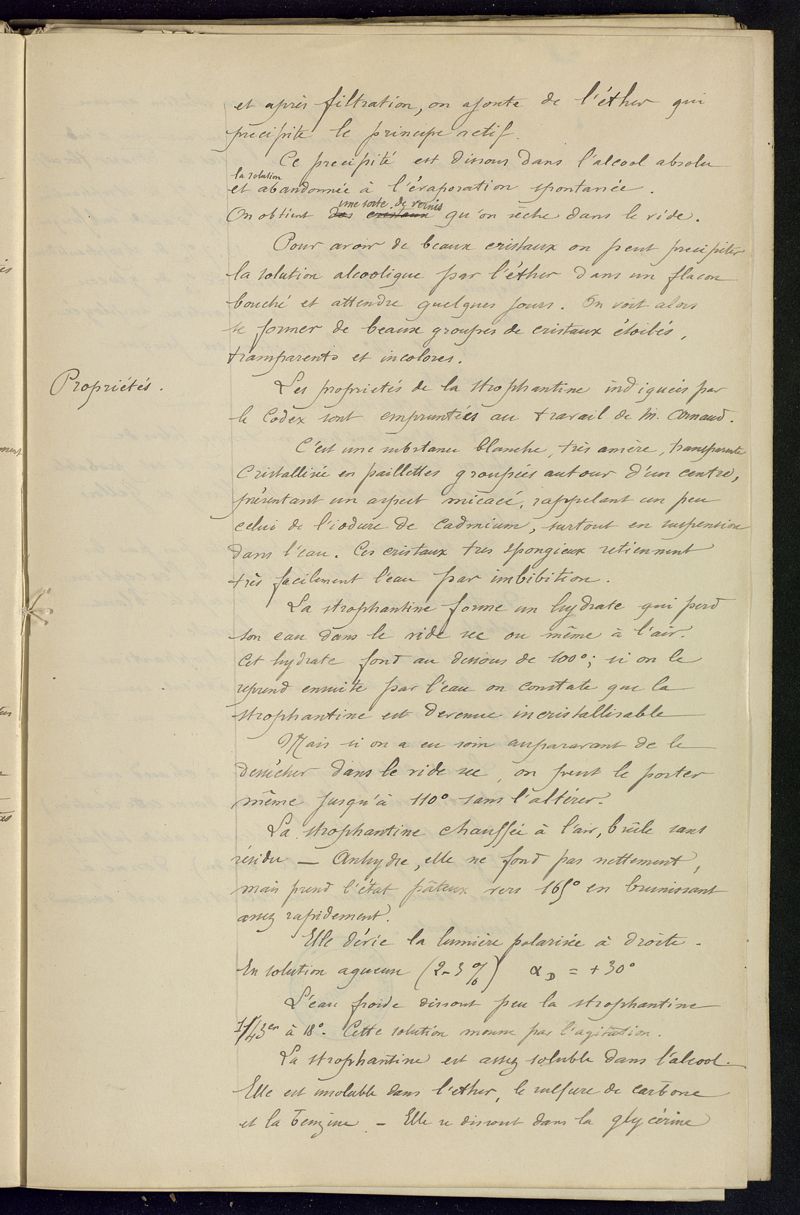 et après filtration, on ajoute de l'éther qui
précipite le principe actif.
Ce precipité est dissous dans l'alcool absolu
la solution
et abandonnée à l'évaporation spontanée.
une sorte de vernis
On obtient des cristaux qu'on sèche dans le vide.
Pour avoir de beaux cristaux on peut precipiter
la solution alcoolique par l'éther dans un flacon
bouché et attendre quelques jours. On voit alors
se former de beaux groupes de cristaux étoilés,
transparents et incolores.
Propriétés.
Les proprietés de la strophantine indiqueés par
le Codex sont empruntées au travail de M. Arnaud.
C'est une substance blanche, très amère, transparente
Cristallisée en paillettes groupées autour d'un centre,
présentant un aspect micacé, rappelant un peu
celui de l'iodure de cadmium, surtout en suspension
dans l'eau. Ces cristaux tres spongieux retiennent
très facilement l'eau par imbibition.
La strophantine forme un hydrate qui perd
son eau dans le vide sec ou même à l'air.
Cet hydrate fond au dessous de 100°; si on le
reprend ensuite par l'eau on constate que la
strophantine est devenue incristallisable
Mais si on a eu soin auparavant de le
dessécher dans le vide sec, on peut le porter
même jusqu'à 110° sans l'altérer.
La strophantine chauffée à l'air, brûle sans
résidu — Anhydre, elle ne fond pas nettement,
mais prend l'état pâteux vers 165° en brunissant
assez rapidement.
Elle dévie la lumière polarisée à droite.
En solution aqueuse (2-3%) α D = +30°
L'eau froide dissout peu la strophantine
1/43en à 18°. Cette solution mousse par l'agitation.
La strophantine est assez soluble dans l'alcool.
Elle est insoluble dans l'ether, le sulfure de carbone
et la benzine. — Elle se dissout dans la glycérine